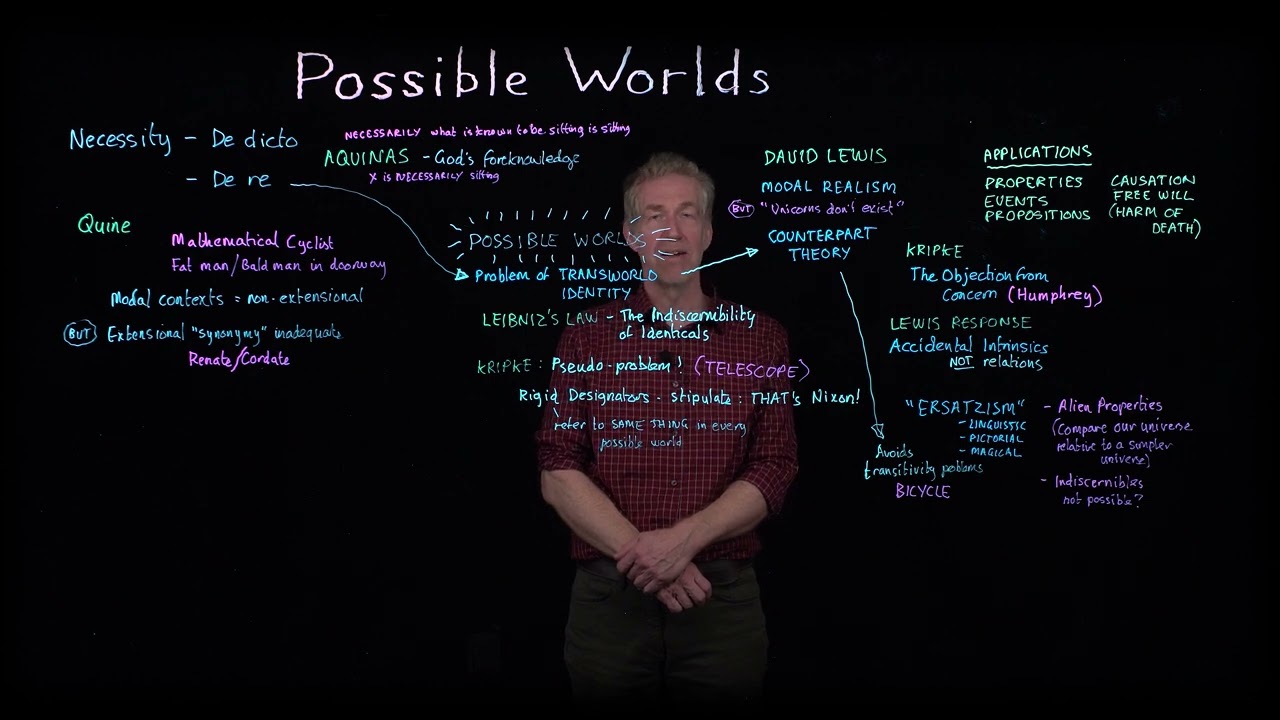 Possible Worlds
Necessity - De dicto
- De re
NECESSARILY what is known to be sitting is sitting
AQUINAS - God's foreknowledge
X is NECESSARILY sitting
Quine
Mathematical Cyclist
Fat man/Bald man in doorway
Modal contexts = non-extensional
BUT Extensional "synonymy" inadequate
Renate/Cordate
POSSIBLE WORLDS
Problem of TRANSWORLD
IDENTITY
LEIBNIZ'S LAW - The Indiscernibility
of Identicals
KRIPKE: Pseudo-problem! (TELESCOPE)
Rigid Designators - stipulate: THAT's Nixon!
refer to SAME THING in every
possible world
DAVID LEWIS
MODAL REALISM
BUT "Unicorns don't exist"
COUNTERPART
THEORY
Avoids
transitivity problems
BICYCLE
APPLICATIONS
PROPERTIES
EVENTS
PROPOSITIONS
CAUSATION
FREE WILL
(HARM OF
DEATH)
KRIPKE
The Objection from
Concern (Humphrey)
LEWIS RESPONSE
Accidental Intrinsics
NOT relations
"ERSATZISM"
- LINGUISTIC
- PICTORIAL
- MAGICAL
- Alien Properties
(Compare our universe
relative to a simpler
universe)
- Indiscernibles
not possible?